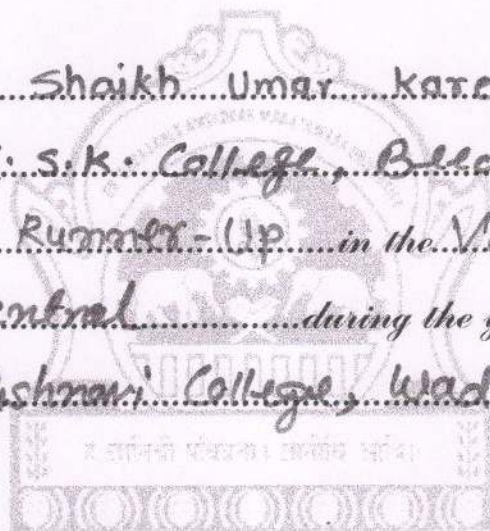 Shaikh Umar kare
S.K. College, Beed
Runner-Up in the V
entral during the g
shnavi College, Wad